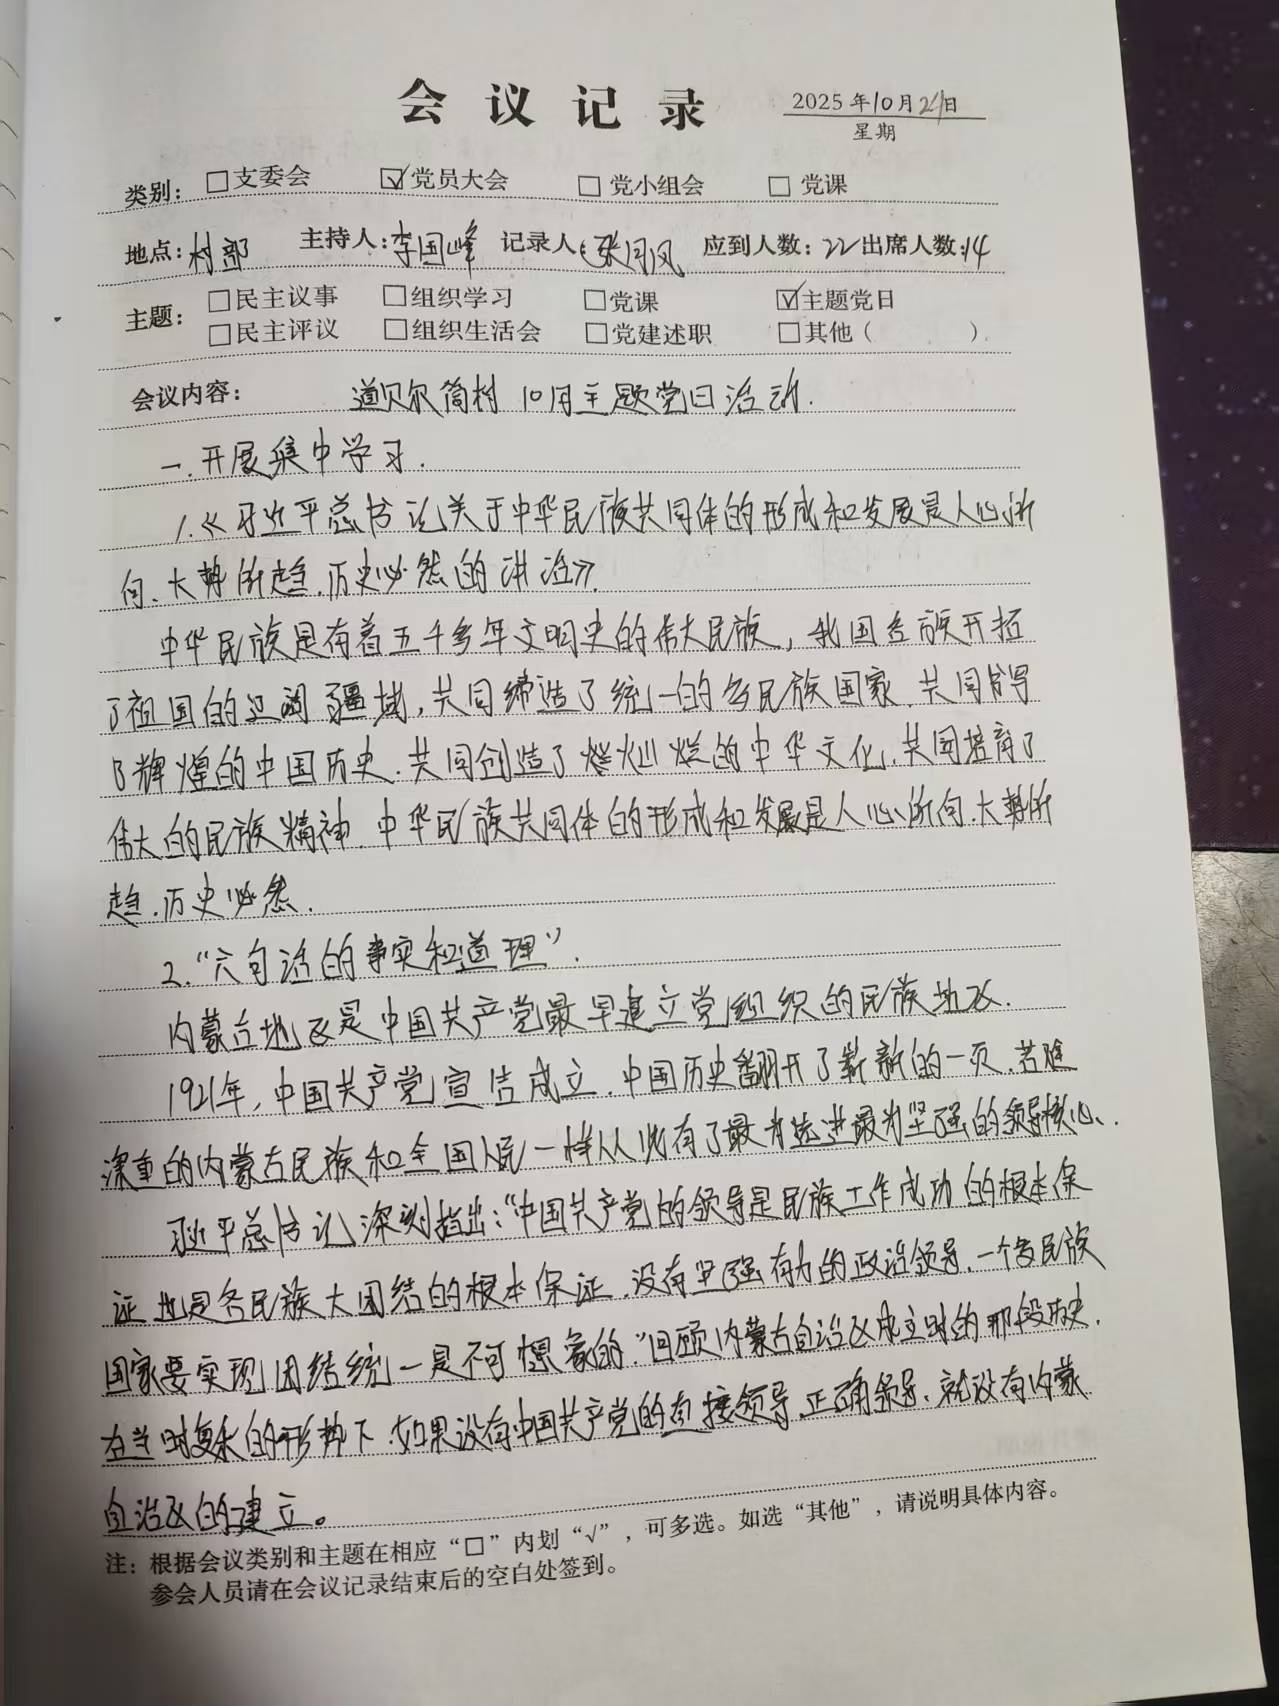 会议记录
2025年10月24日
星期
类别：□支委会 ☑党员大会 □党小组会 □党课
地点：村部 主持人：李国峰 记录人：张月凤 应到人数：22 出席人数：14
主题：□民主议事 □组织学习 □党课 ☑主题党日
□民主评议 □组织生活会 □党建述职 □其他（ ）.
会议内容： 道贝尔筒村 10月主题党日活动.
一.开展集中学习.
1.《习近平总书记关于中华民族共同体的形成和发展是人心所
向、大势所趋.历史必然的讲话》
中华民族是有着五千多年文明史的伟大民族，我国各族开拓
了祖国的辽阔疆域，共同缔造了统一的多民族国家.共同书写
了辉煌的中国历史.共同创造了灿烂的中华文化.共同培育了
伟大的民族精神.中华民族共同体的形成和发展是人心所向.大势所
趋.历史必然.
2.“六句话的事实和道理”.
内蒙古地区是中国共产党最早建立党组织的民族地区.
1921年，中国共产党宣告成立.中国历史翻开了崭新的一页.苦难
深重的内蒙古民族和全国人民一样从此有了最为先进最为坚强的领导核心.
习近平总书记深刻指出：“中国共产党的领导是民族工作成功的根本保
证也是各民族大团结的根本保证.没有坚强有力的政治领导.一个多民族
国家要实现团结统一是不可想象的.”回顾内蒙古自治区成立时的那段历史.
在当时复杂的形势下.如果没有中国共产党的直接领导.正确领导.就没有内蒙
自治区的建立。
注：根据会议类别和主题在相应“□”内划“√”，可多选。如选“其他”，请说明具体内容。
参会人员请在会议记录结束后的空白处签到。